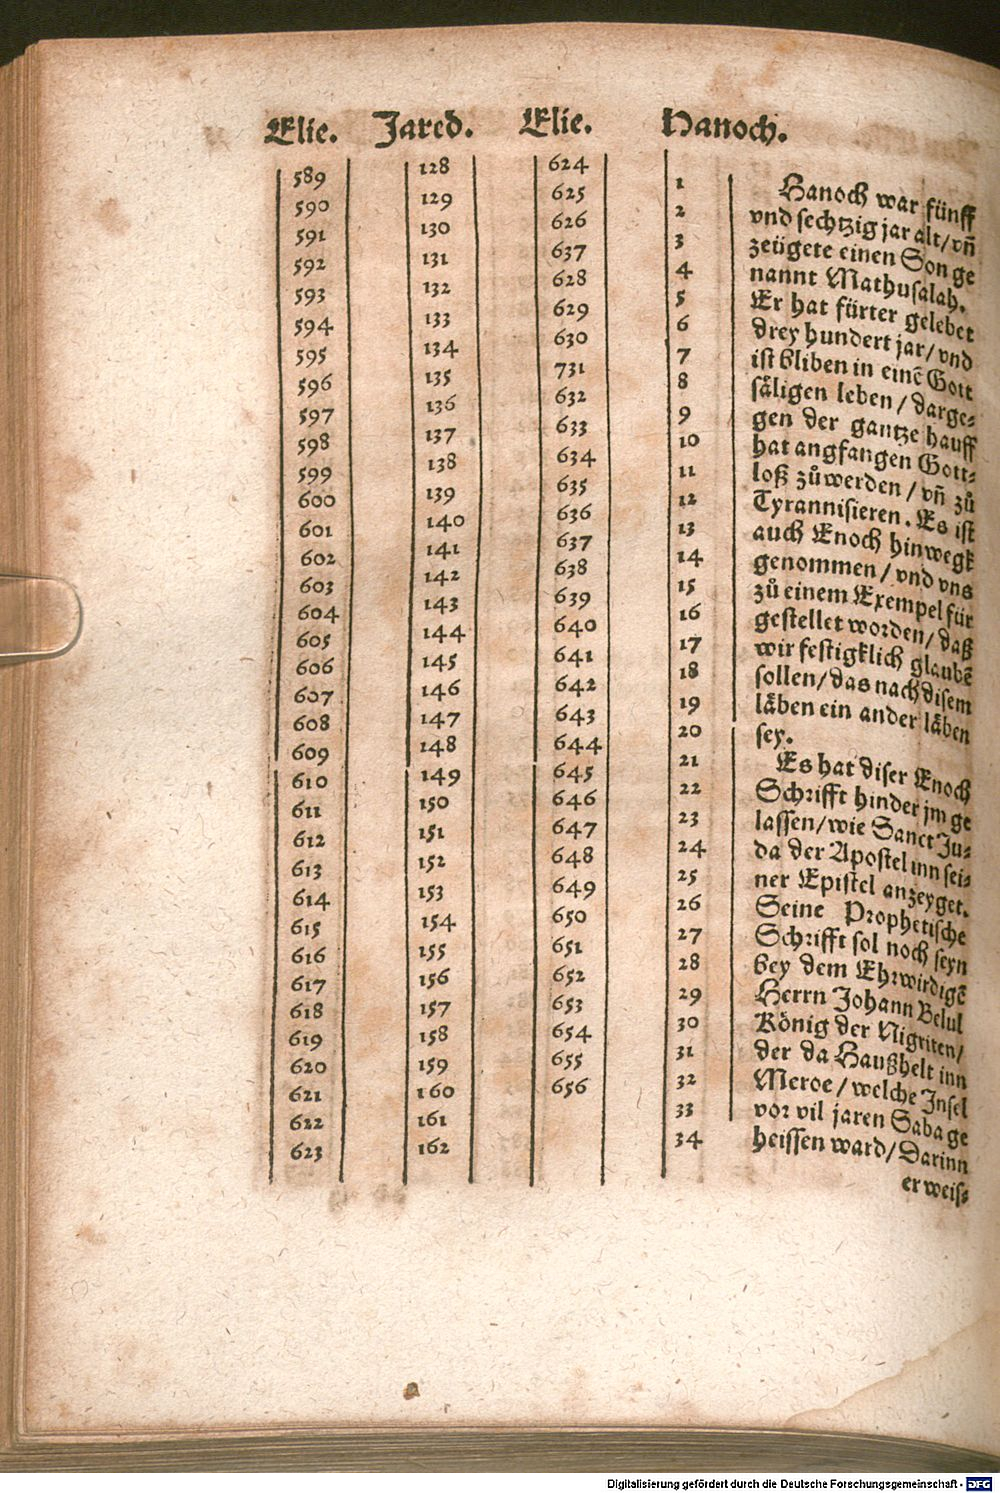 Elie. Jared. Elie. Hanoch.
589 128 624
590 129 625 1
591 130 626 2
592 131 637 3
593 132 628 4
594 133 629 5
595 134 630 6
596 135 731 7
597 136 632 8
598 137 633 9
599 138 634 10
600 139 635 11
601 140 636 12
602 141 637 13
603 142 638 14
604 143 639 15
605 144 640 16
606 145 641 17
607 146 642 18
608 147 643 19
609 148 644 20
610 149 645 21
611 150 646 22
612 151 647 23
613 152 648 24
614 153 649 25
615 154 650 26
616 155 651 27
617 156 652 28
618 157 653 29
619 158 654 30
620 159 655 31
621 160 656 32
622 161 33
623 162 34
Hanoch war fünff
vnd sechtzig jar alt/vñ
zeügete einen Son ge
nannt Mathusalah.
Er hat fürter gelebet
drey hundert jar/vnd
ist bliben in einẽ Gott
såligen leben/darge⸗
gen der gantze hauff
hat angfangen Gott⸗
loß zůwerden/vñ zů
Tyrannisieren. Es ist
auch Enoch hinwegk
genommen/vnd vns
zů einem Exempel für
gestellet worden/daß
wir festigklich glaubẽ
sollen/das nach disem
låben ein ander låben
sey.
Es hat diser Enoch
Schrifft hinder jm ge
lassen/wie Sanct Ju⸗
da der Apostel inn sei⸗
ner Epistel anzeyget.
Seine Prophetische
Schrifft sol noch seyn
bey dem Ehrwirdigẽ
Herrn Johann Belul
König der Nigriten/
der da Haußhelt inn
Meroe/welche Insel
vor vil jaren Saba ge
heissen ward/Darinn
er weis⸗
Digitalisierung gefördert durch die Deutsche Forschungsgemeinschaft - DFG